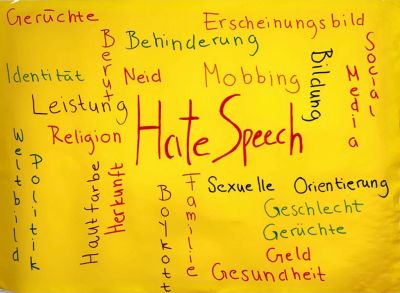 Gerüchte
Erscheinungsbild
Beruf
Behinderung
Social
Media
Bildung
Identität
Neid
Mobbing
Leistung
Hate Speech
Religion
Weltbild
Politik
Hautfarbe
Herkunft
Boykott
Familie
Sexuelle Orientierung
Geschlecht
Gerüchte
Geld
Gesundheit